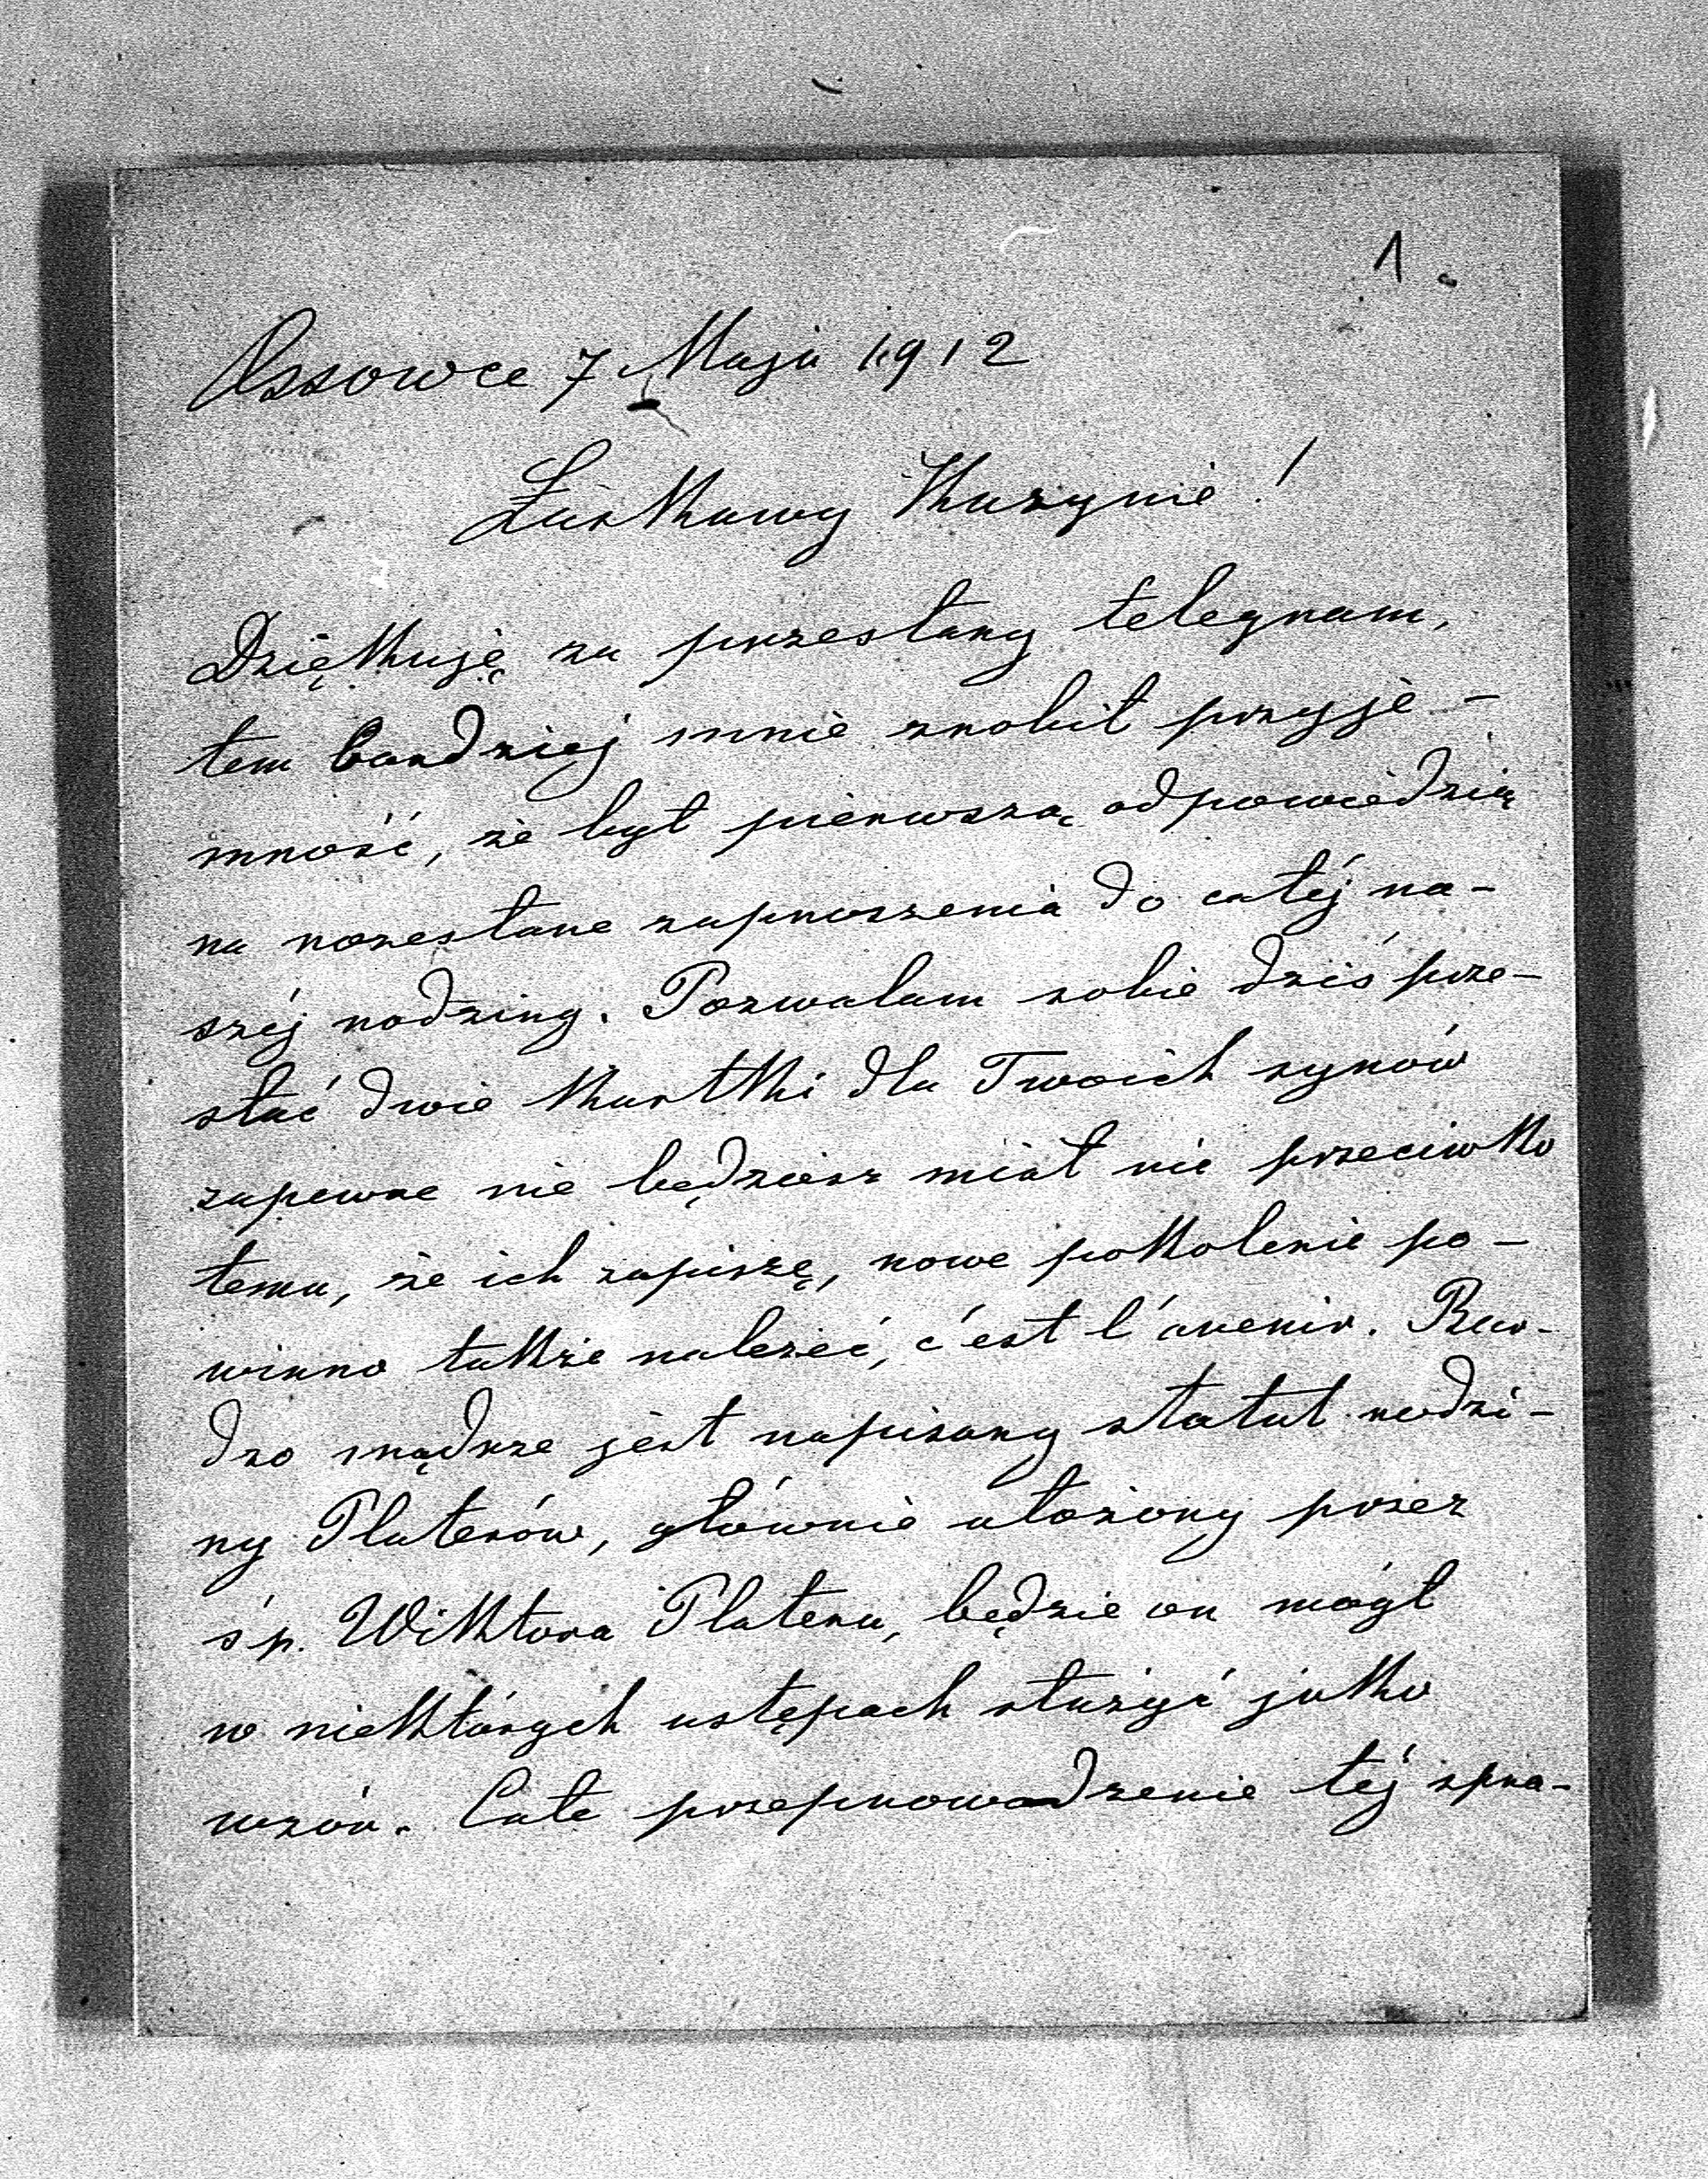 1.
Ossowce 7 Maja 1912
Łaskawy Kuzynie!
Dziękuję za przesłany telegram,
tem bardziej mnie zrobił przyje-
mność, że był pierwszą odpowiedzią
na rozesłane zaproszenia do całéj na-
széj rodziny. Pozwalam sobie dziś prze-
słać dwie kartki dla Twoich synów
zapewne nie będziesz miał nic przeciwko
temu, że ich zapiszę, nowe pokolenie po-
winno także należeć, c'est l'avenir. Bar-
dzo mądrze jest napisany statut rodzi-
ny Platerów, głównie ułożony przez
śp. Wiktora Platera, będzie on mógł
w niektórych ustępach służyć jako
wzór. Całe przeprowadzenie téj spra-